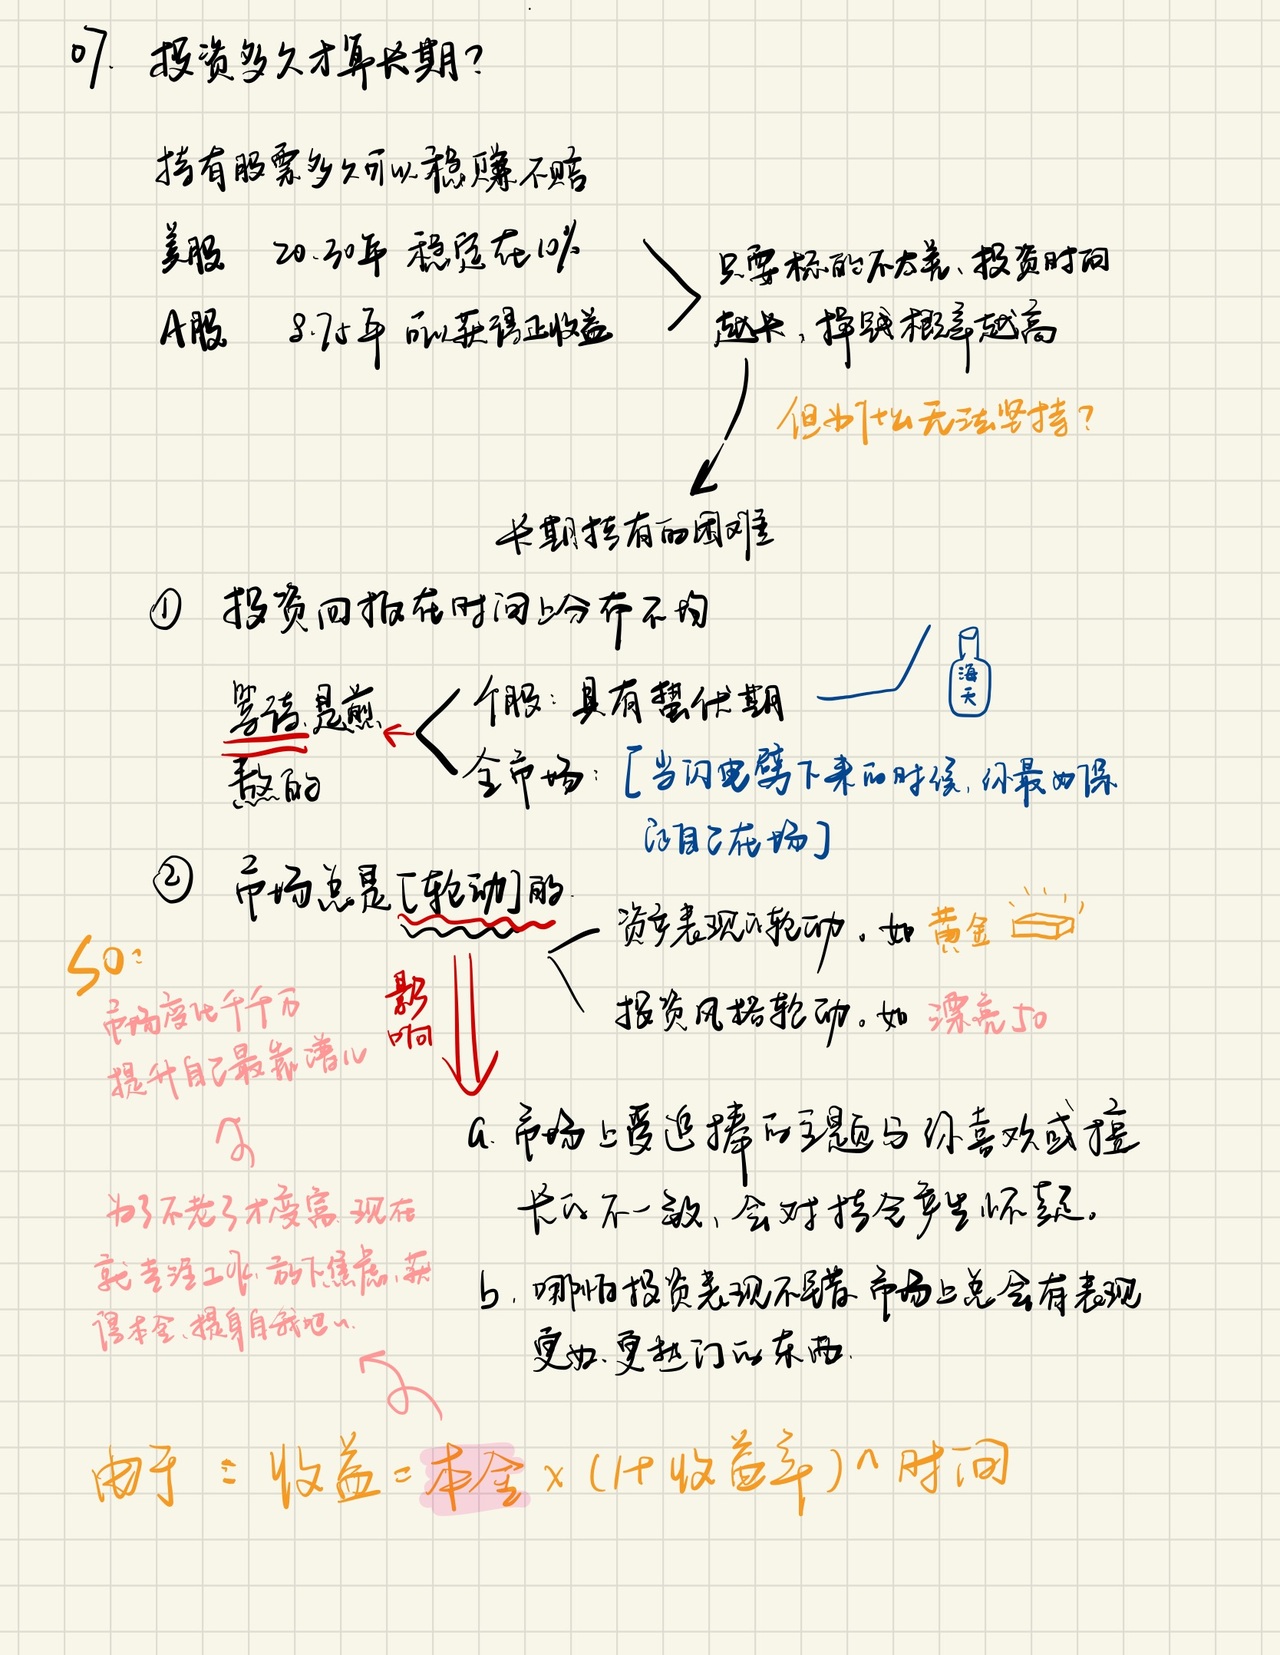 07. 投资多久才算长期？
持有股票多久可以稳赚不赔
美股 20.30年 稳定在10%
A股 8.75年 可以获得正收益
只要标的不太差、投资时间
越长，挣钱概率越高
但为什么无法坚持？
长期持有的困难
① 投资回报在时间上分布不均
等待是煎
熬的
个股：具有蛰伏期
海
天
全市场：[当闪电劈下来的时候，你最好保
证自己在场]
② 市场总是[轮动]的
资产表现的轮动。如 黄金
投资风格轮动。如 漂亮50
影
响
a. 市场上受追捧的主题与你喜欢或擅
长的不一致、会对持仓产生怀疑。
b. 哪怕投资表现不错 市场上总会有表现
更好、更热门的东西.
SO：
市场变化千千万
提升自己最靠谱儿
为了不老了才变富 现在
就专注工作、放下焦虑、获
得本金、提身自我吧~
由于：收益=本金×(1+收益率)^时间